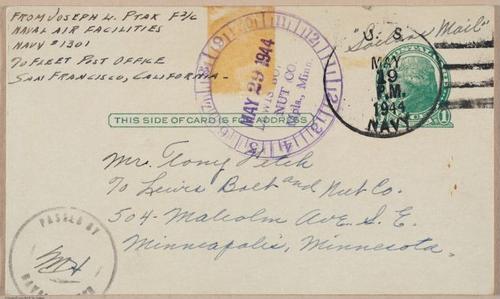 FROM JOSEPH L. PTAK F3/C
NAVAL AIR FACILITIES
NAVY #1301
℅ FLEET POST OFFICE
SAN FRANCISCO, CALIFORNIA.
"Sailors Mail"
U. S.
MAY
19
P.M.
1944
NAVY
MAY 29 1944
NUT CO.
Mpls., Minn.
THIS SIDE OF CARD IS FOR ADDRESS
Mr. Tony
℅ Lewis Bolt and Nut Co.
504- Malcolm Ave. S. E.
Minneapolis, Minnesota.
PASSED BY